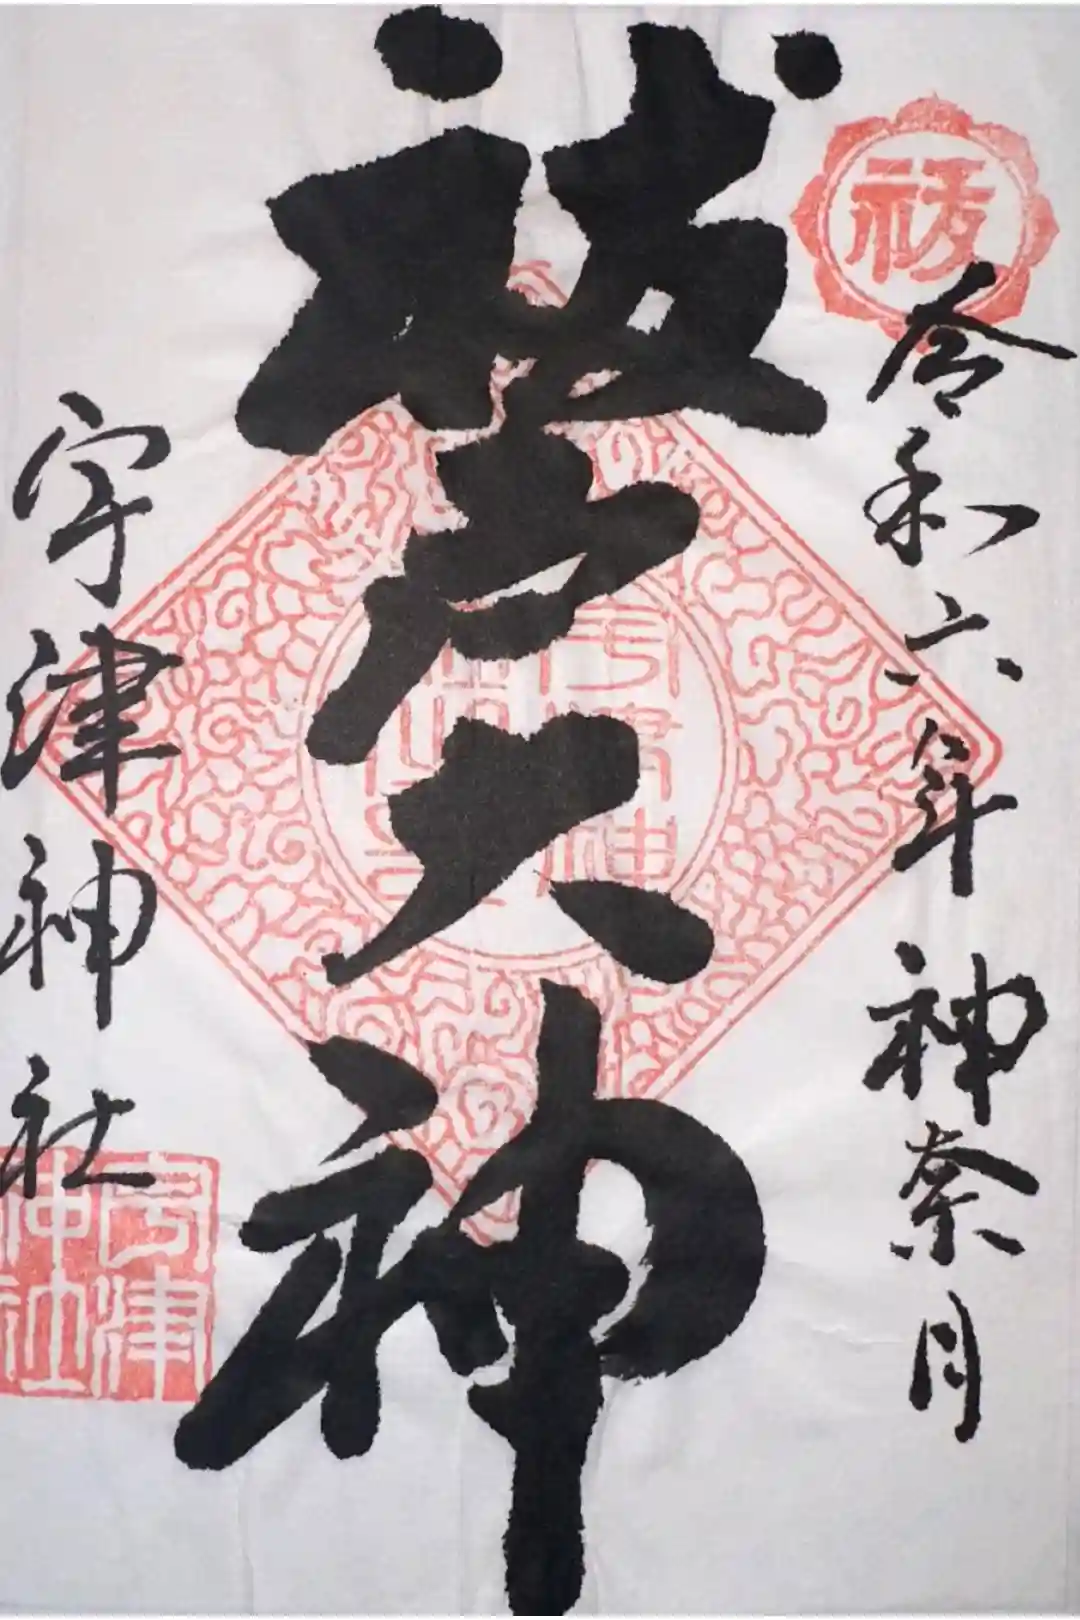 祓
令和六年 神奈月
祓戸大神
宇津神社
宇津
神社